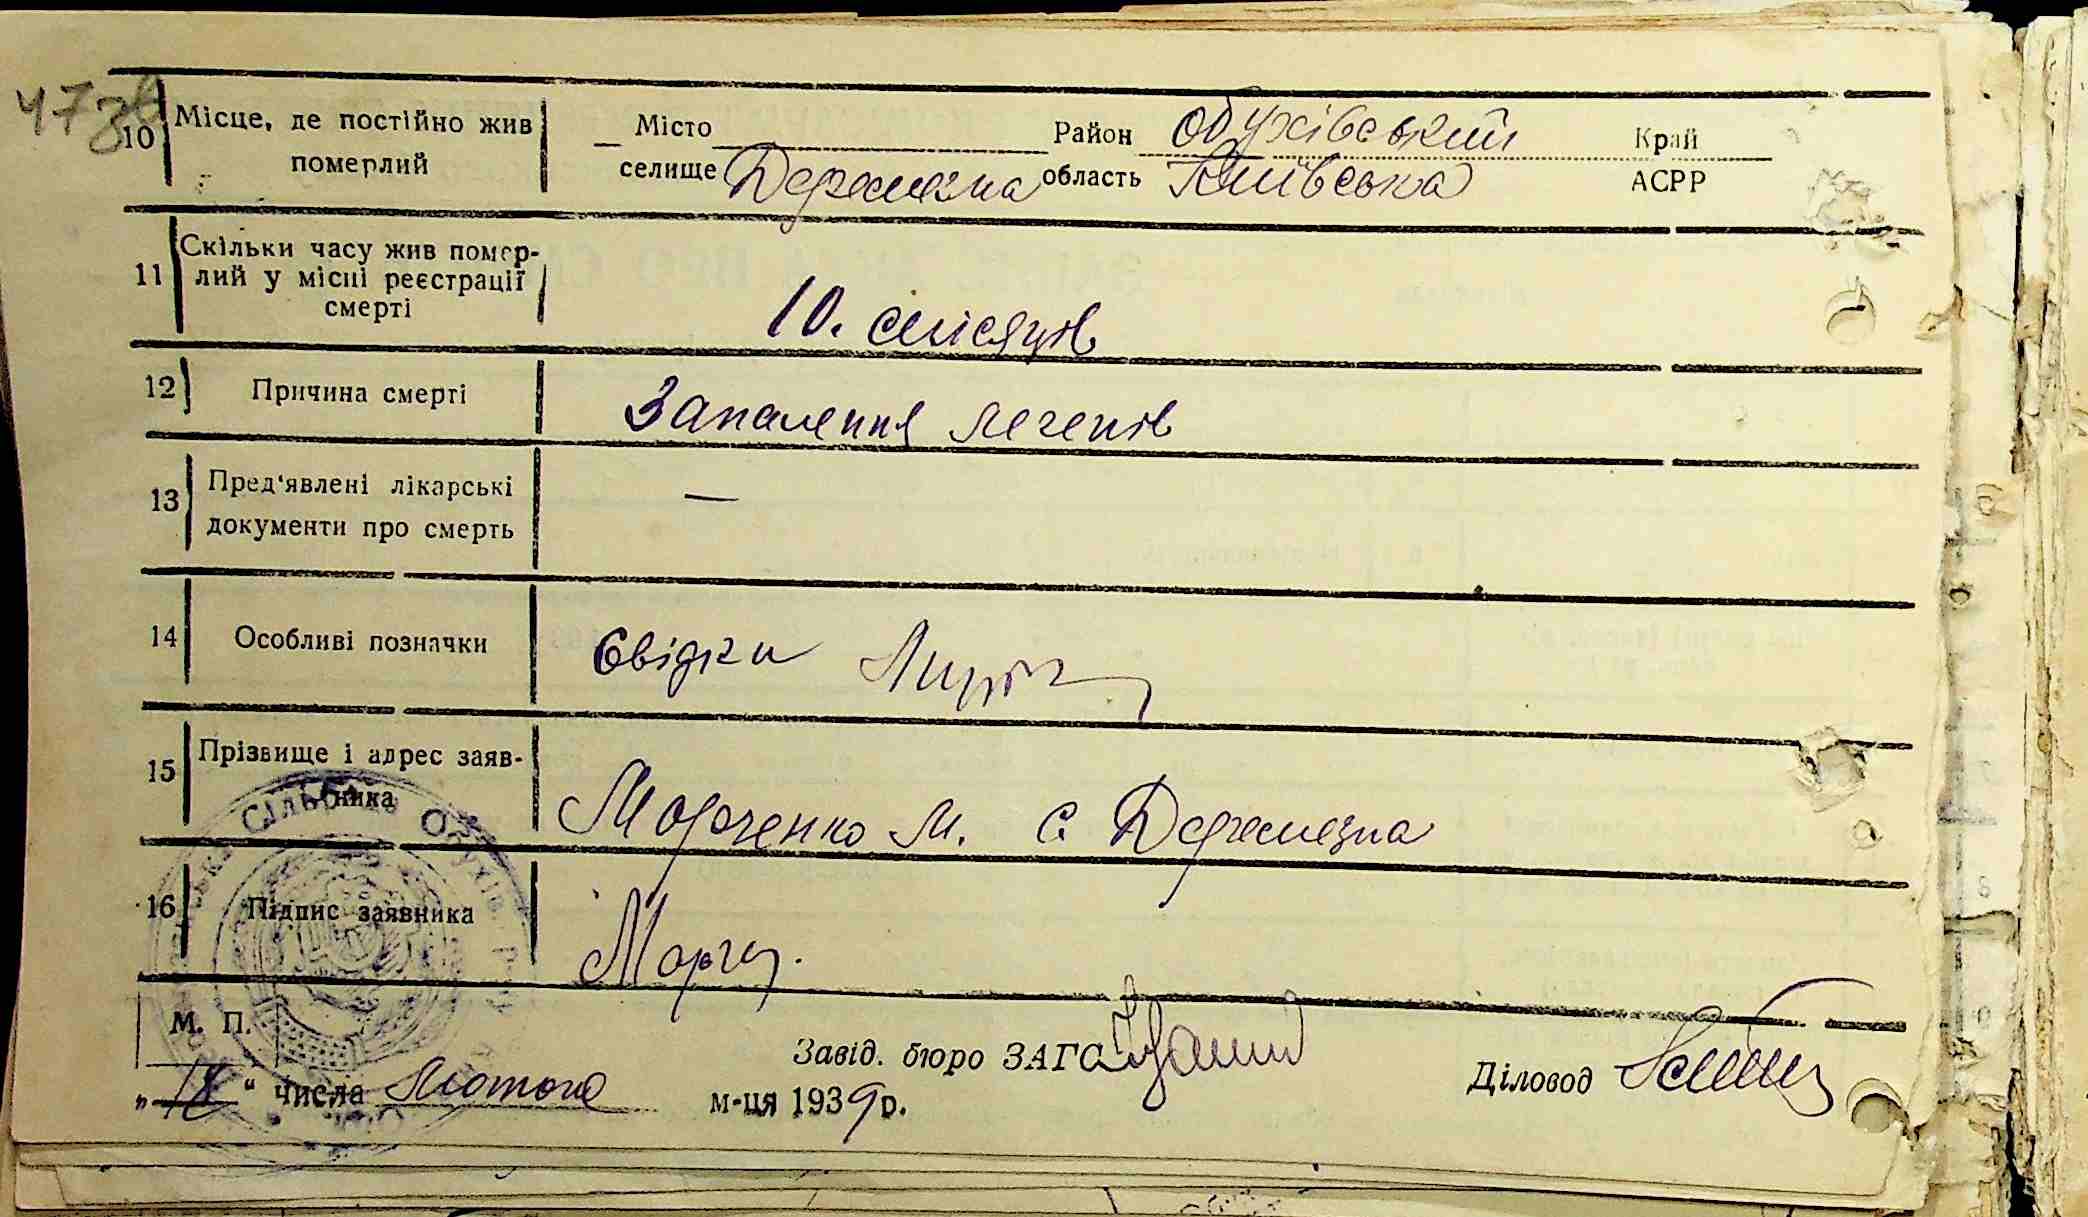 47зв
10 Місце, де постійно жив померлий
Місто Район Обухівський Край
селище Деремезна область Київська АСРР
11 Скільки часу жив помер-
лий у місці реєстрації
смерті
10. місяців
12 Причина смерті Запалення легенів
13 Пред'явлені лікарські
документи про смерть
—
14 Особливі позначки свідки
15 Прізвище і адрес заяв-
ника
Морченко М. с. Деремезна
16 Підпис заявника
М. П.
Завід. бюро ЗАГС Діловод
„18“ числа Лютого м-ця 1939 р.